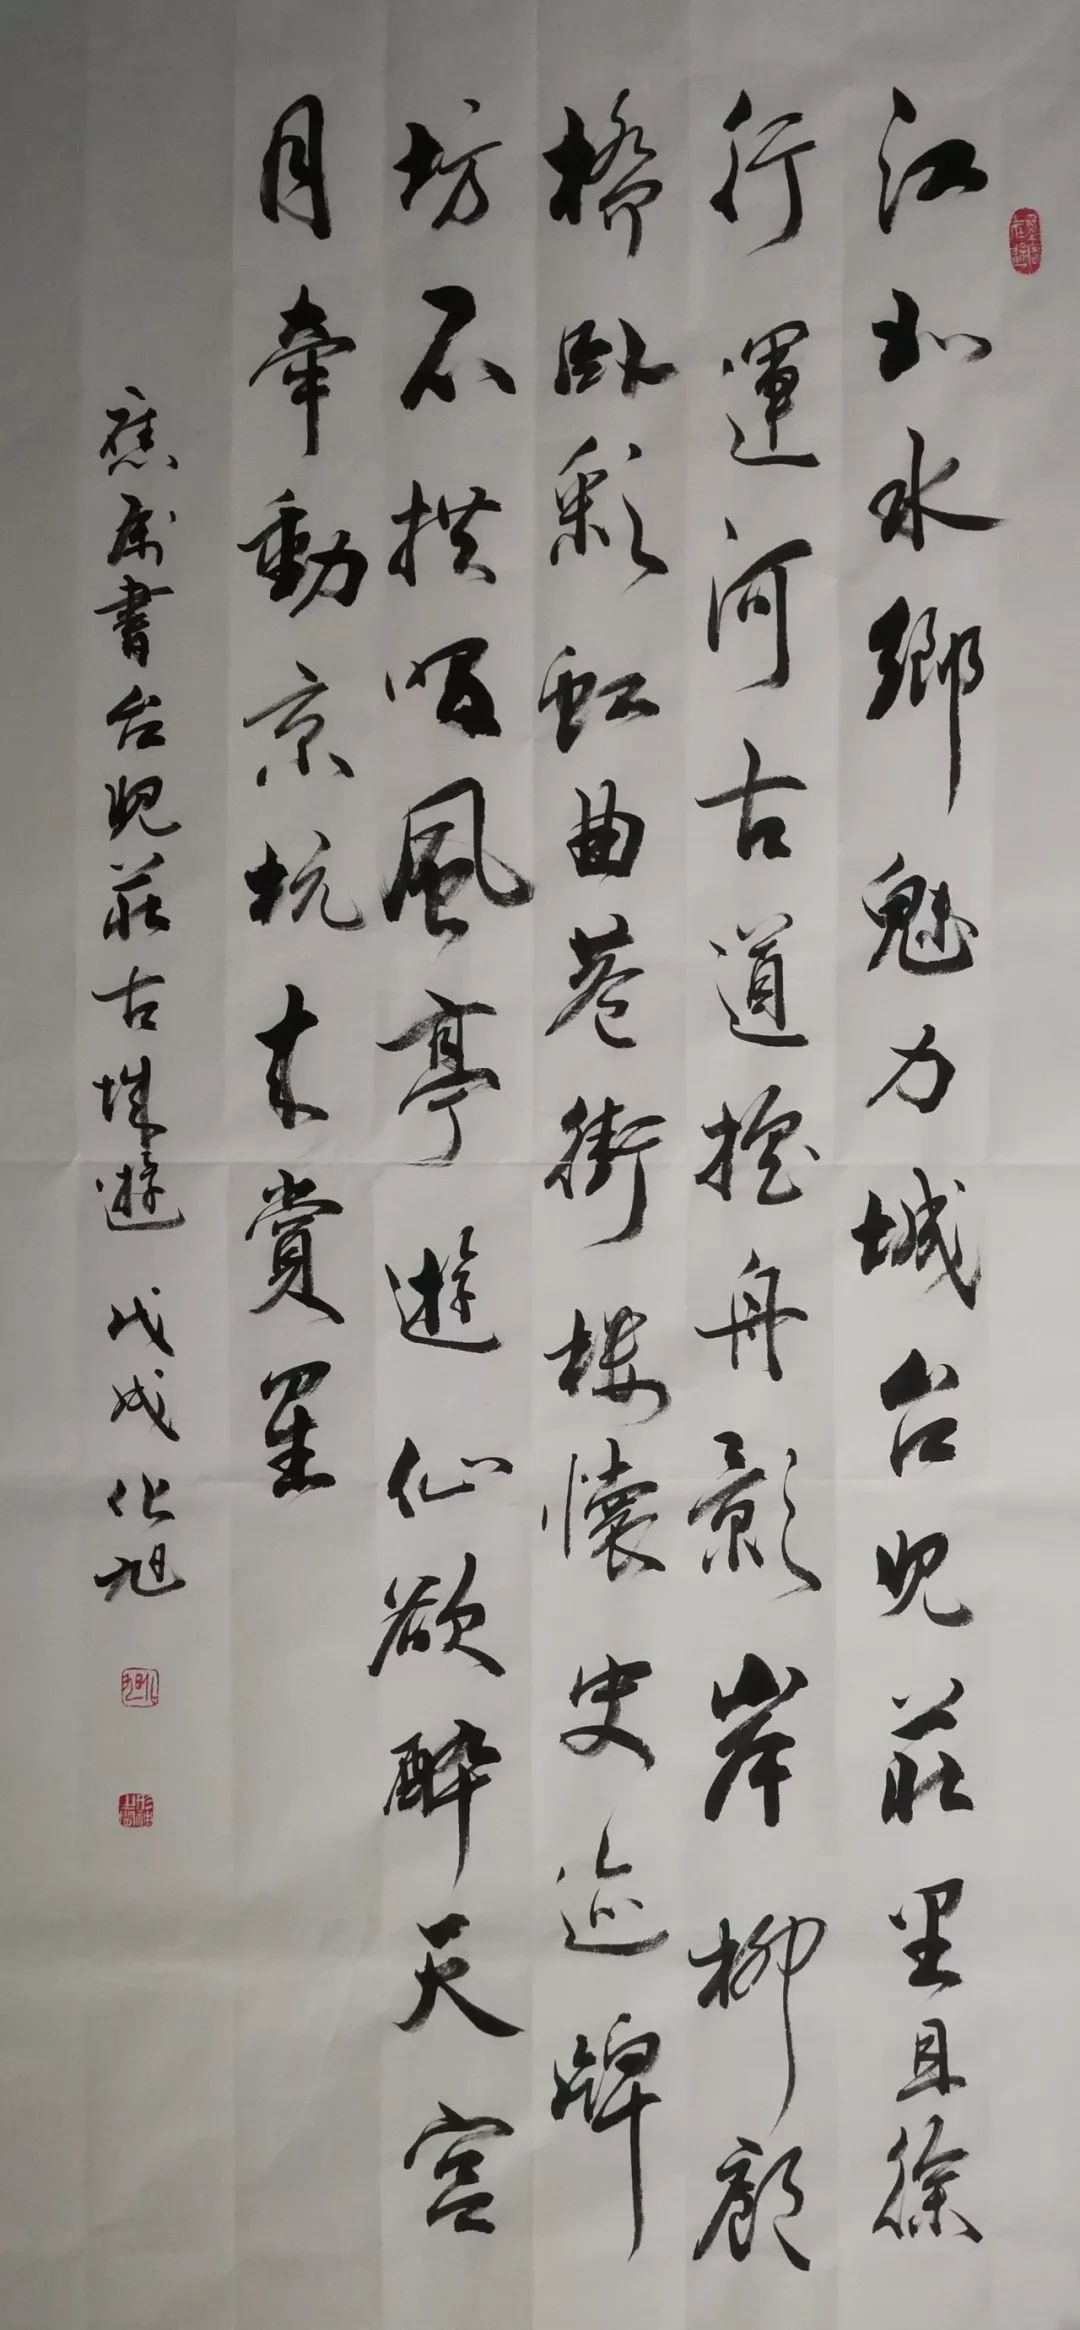 江北水鄉魅力城台兒莊里且徐
行運河古道搖舟影岸柳廊
橋臥彩虹曲巷街樓懷史迹牌
坊石拱風亭遊仙欲醉天宫
月牽動京杭来賞星
應属書台兒莊古城遊 戊戌 化旭